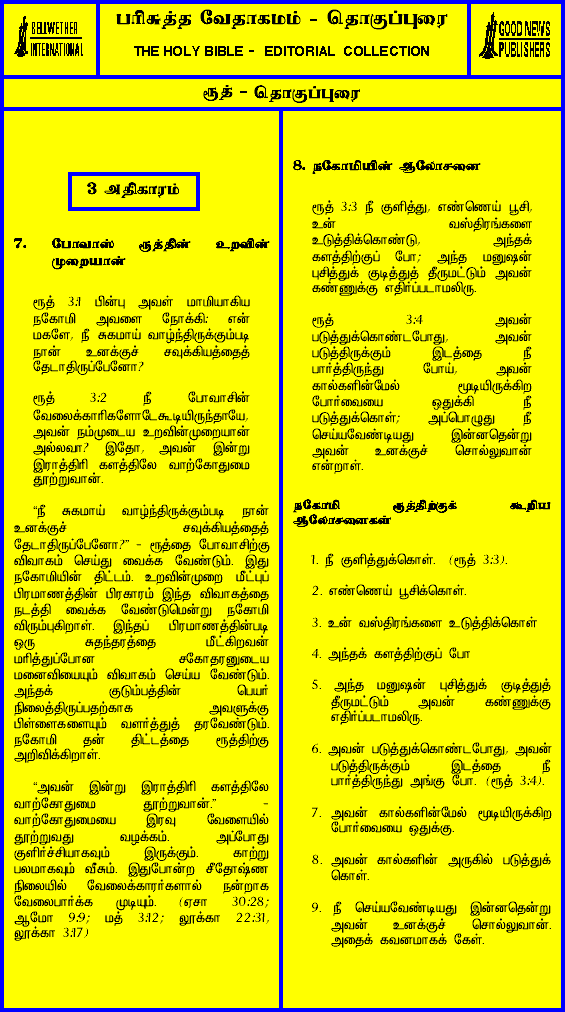 BELLWETHER
INTERNATIONAL
பரிசுத்த வேதாகமம் - தொகுப்புரை
THE HOLY BIBLE - EDITORIAL COLLECTION
GOOD NEWS
PUBLISHERS
ரூத் - தொகுப்புரை
3 அதிகாரம்
7. போவாஸ் ரூத்தின் உறவின்
முறையான்
ரூத் 3:1 பின்பு அவள் மாமியாகிய
நகோமி அவளை நோக்கி: என்
மகளே, நீ சுகமாய் வாழ்ந்திருக்கும்படி
நான் உனக்குச் சவுக்கியத்தைத்
தேடாதிருப்பேனோ?
ரூத் 3:2 நீ போவாசின்
வேலைக்காரிகளோடேகூடியிருந்தாயே,
அவன் நம்முடைய உறவின்முறையான்
அல்லவா? இதோ, அவன் இன்று
இராத்திரி களத்திலே வாற்கோதுமை
தூற்றுவான்.
“நீ சுகமாய் வாழ்ந்திருக்கும்படி நான்
உனக்குச் சவுக்கியத்தைத்
தேடாதிருப்பேனோ?” - ரூத்தை போவாசிற்கு
விவாகம் செய்து வைக்க வேண்டும். இது
நகோமியின் திட்டம். உறவின்முறை மீட்புப்
பிரமாணத்தின் பிரகாரம் இந்த விவாகத்தை
நடத்தி வைக்க வேண்டுமென்று நகோமி
விரும்புகிறாள். இந்தப் பிரமாணத்தின்படி
ஒரு சுதந்தரத்தை மீட்கிறவன்
மரித்துப்போன சகோதரனுடைய
மனைவியையும் விவாகம் செய்ய வேண்டும்.
அந்தக் குடும்பத்தின் பெயர்
நிலைத்திருப்பதற்காக அவளுக்கு
பிள்ளைகளையும் வளர்த்துத் தரவேண்டும்.
நகோமி தன் திட்டத்தை ரூத்திற்கு
அறிவிக்கிறாள்.
“அவன் இன்று இராத்திரி களத்திலே
வாற்கோதுமை தூற்றுவான்.” -
வாற்கோதுமையை இரவு வேளையில்
தூற்றுவது வழக்கம். அப்போது
குளிர்ச்சியாகவும் இருக்கும். காற்று
பலமாகவும் வீசும். இதுபோன்ற சீதோஷ்ண
நிலையில் வேலைக்காரர்களால் நன்றாக
வேலைபார்க்க முடியும். (ஏசா 30:28;
ஆமோ 9:9; மத் 3:12; லூக்கா 22:31,
லூக்கா 3:17)
8. நகோமியின் ஆலோசனை
ரூத் 3:3 நீ குளித்து, எண்ணெய் பூசி,
உன் வஸ்திரங்களை
உடுத்திக்கொண்டு, அந்தக்
களத்திற்குப் போ; அந்த மனுஷன்
புசித்துக் குடித்துத் தீருமட்டும் அவன்
கண்ணுக்கு எதிர்ப்படாமலிரு.
ரூத் 3:4 அவன்
படுத்துக்கொண்டபோது, அவன்
படுத்திருக்கும் இடத்தை நீ
பார்த்திருந்து போய், அவன்
கால்களின்மேல் மூடியிருக்கிற
போர்வையை ஒதுக்கி நீ
படுத்துக்கொள்; அப்பொழுது நீ
செய்யவேண்டியது இன்னதென்று
அவன் உனக்குச் சொல்லுவான்
என்றாள்.
நகோமி ரூத்திற்குக் கூறிய
ஆலோசனைகள்
1. நீ குளித்துக்கொள். (ரூத் 3:3).
2. எண்ணெய் பூசிக்கொள்.
3. உன் வஸ்திரங்களை உடுத்திக்கொள்
4. அந்தக் களத்திற்குப் போ
5. அந்த மனுஷன் புசித்துக் குடித்துத்
தீருமட்டும் அவன் கண்ணுக்கு
எதிர்ப்படாமலிரு.
6. அவன் படுத்துக்கொண்டபோது, அவன்
படுத்திருக்கும் இடத்தை நீ
பார்த்திருந்து அங்கு போ. (ரூத் 3:4).
7. அவன் கால்களின்மேல் மூடியிருக்கிற
போர்வையை ஒதுக்கு.
8. அவன் கால்களின் அருகில் படுத்துக்
கொள்.
9. நீ செய்யவேண்டியது இன்னதென்று
அவன் உனக்குச் சொல்லுவான்.
அதைக் கவனமாகக் கேள்.